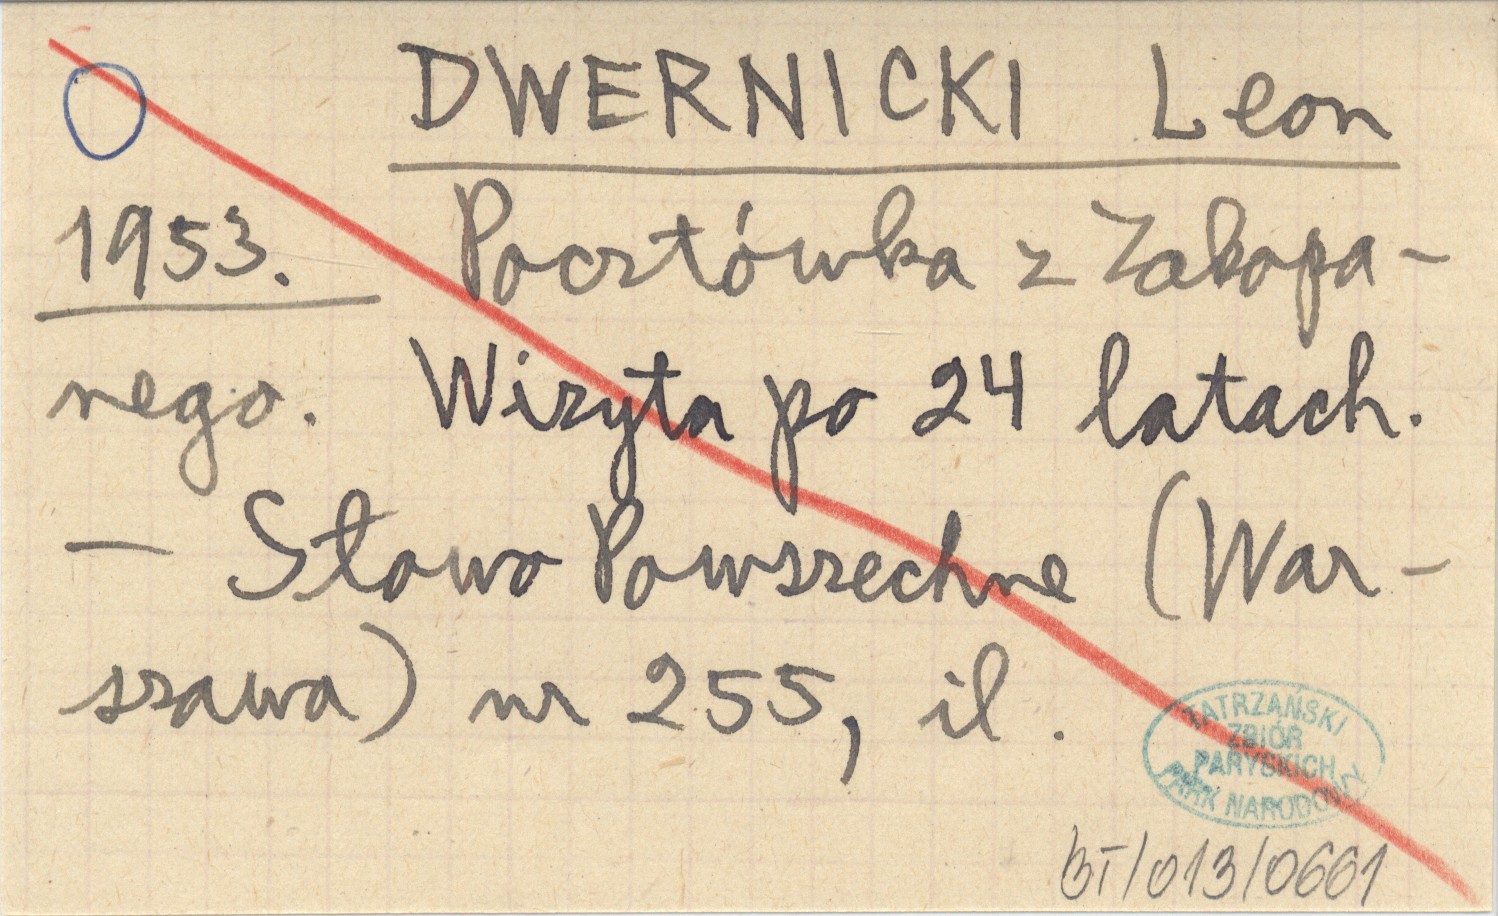 DWERNICKI Leon
1953. Pocztówka z Zakopa-
nego. Wizyta po 24 latach.
— Słowo Powszechne (War-
szawa) nr 255, il.
TATRZAŃSKI
ZBIÓR
PARYSKICH
PARK NARODOWY
BT/013/0661